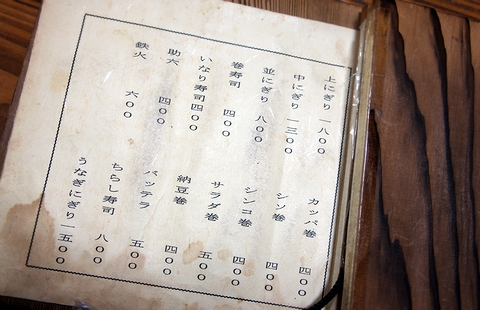 上にぎり 一八〇〇
中にぎり 一三〇〇
並にぎり 八〇〇
巻寿司 四〇〇
いなり寿司 四〇〇
助六 四〇〇
鉄火 六〇〇
カッパ巻 四〇〇
シソ巻 四〇〇
シンコ巻 四〇〇
サラダ巻 五〇〇
納豆巻 四〇〇
バッテラ 五〇〇
ちらし寿司 八〇〇
うなぎにぎり 一五〇〇